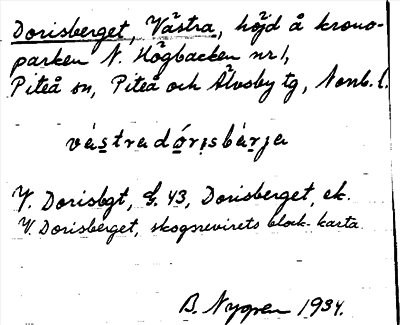 Dorisberget, Västra, höjd å krono-
parken N. Högbacken nr 1,
Piteå sn, Piteå och Älvsby tg, Norrb. l.
västradórisbàrja
V. Dorisbgt, G. 43, Dorisberget, ek.
V. Dorisberget, skogsrevirets block-karta
B. Nygren 1934.